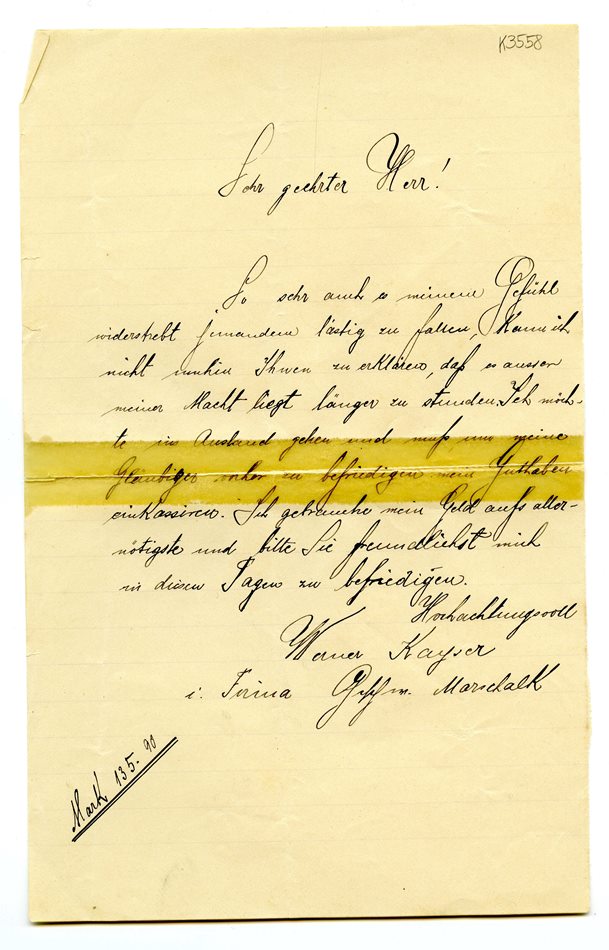 K3558
Sehr geehrter Herr!
So sehr auch es meinem Gefühl
widerstrebt jemandem lästig zu fallen, kann ich
nicht umhin Ihnen zu erklären, daß es ausser
meiner Macht liegt länger zu stunden. Ich möch-
te in Ausland gehen und muß um meine
Gläubiger vorher zu befriedigen mein Guthaben
einkassiren. Ich gebrauche mein Geld aufs aller-
nötigste und bitte Sie freundlichst mich
in diesen Tagen zu befriedigen.
Hochachtungsvoll
Werner Kayser
i. Firma Gesch w. Marschalk
Mark 135.90